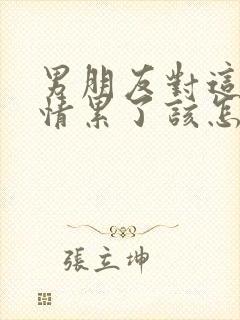 男朋友對這
情累了該怎
張立坤